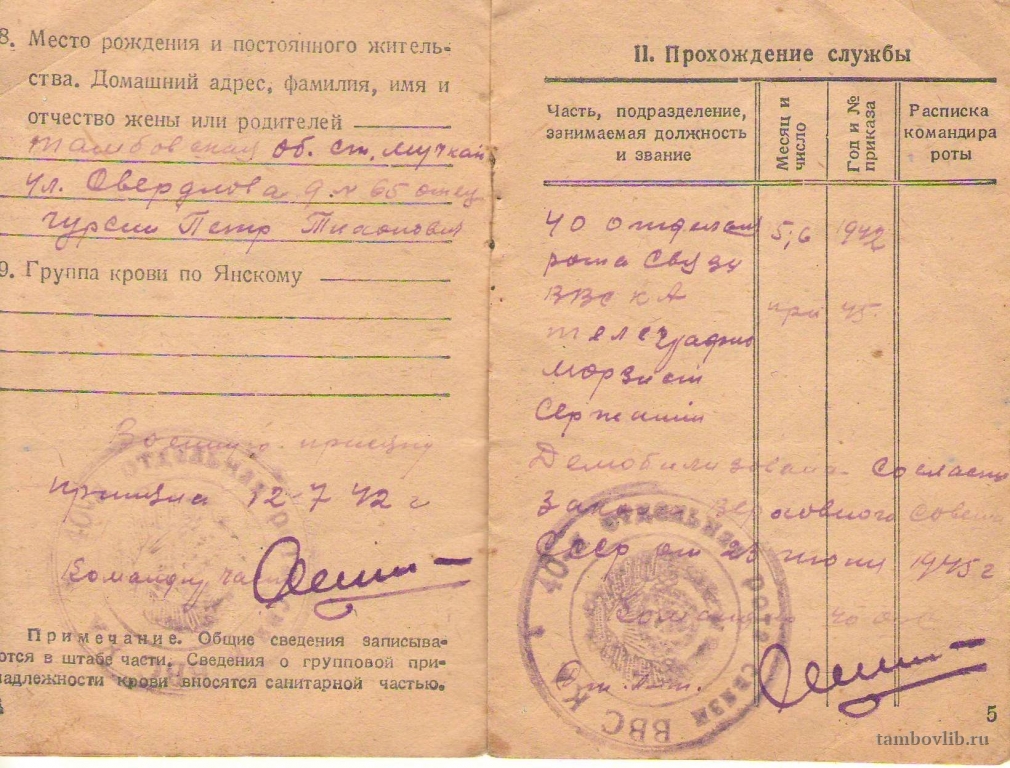 8. Место рождения и постоянного житель-
ства. Домашний адрес, фамилия, имя и
отчество жены или родителей
Тамбовская об. ст. Мучкап
ул. Свердлова д. № 65 отец
Петр Тихонович
9. Группа крови по Янскому
Военную присягу
приняла 12-7 42 г
Командир части
Примечание. Общие сведения записыва-
ются в штабе части. Сведения о групповой при-
надлежности крови вносятся санитарной частью.
II. Прохождение службы
Часть, подразделение,
занимаемая должность
и звание
Месяц и
число
Год и №
приказа
Расписка
командира
роты
40 отдельная 5,6 1942
рота связи
ВВС КА 45.
телеграфист
морзист
Сержант
Демобилизована согласно
Закона Верховного Совета
СССР от 23 июня 1945 г
Командир части
40я ОТДЕЛЬНАЯ РОТА СВЯЗИ ВВС КА
5
tambovlib.ru